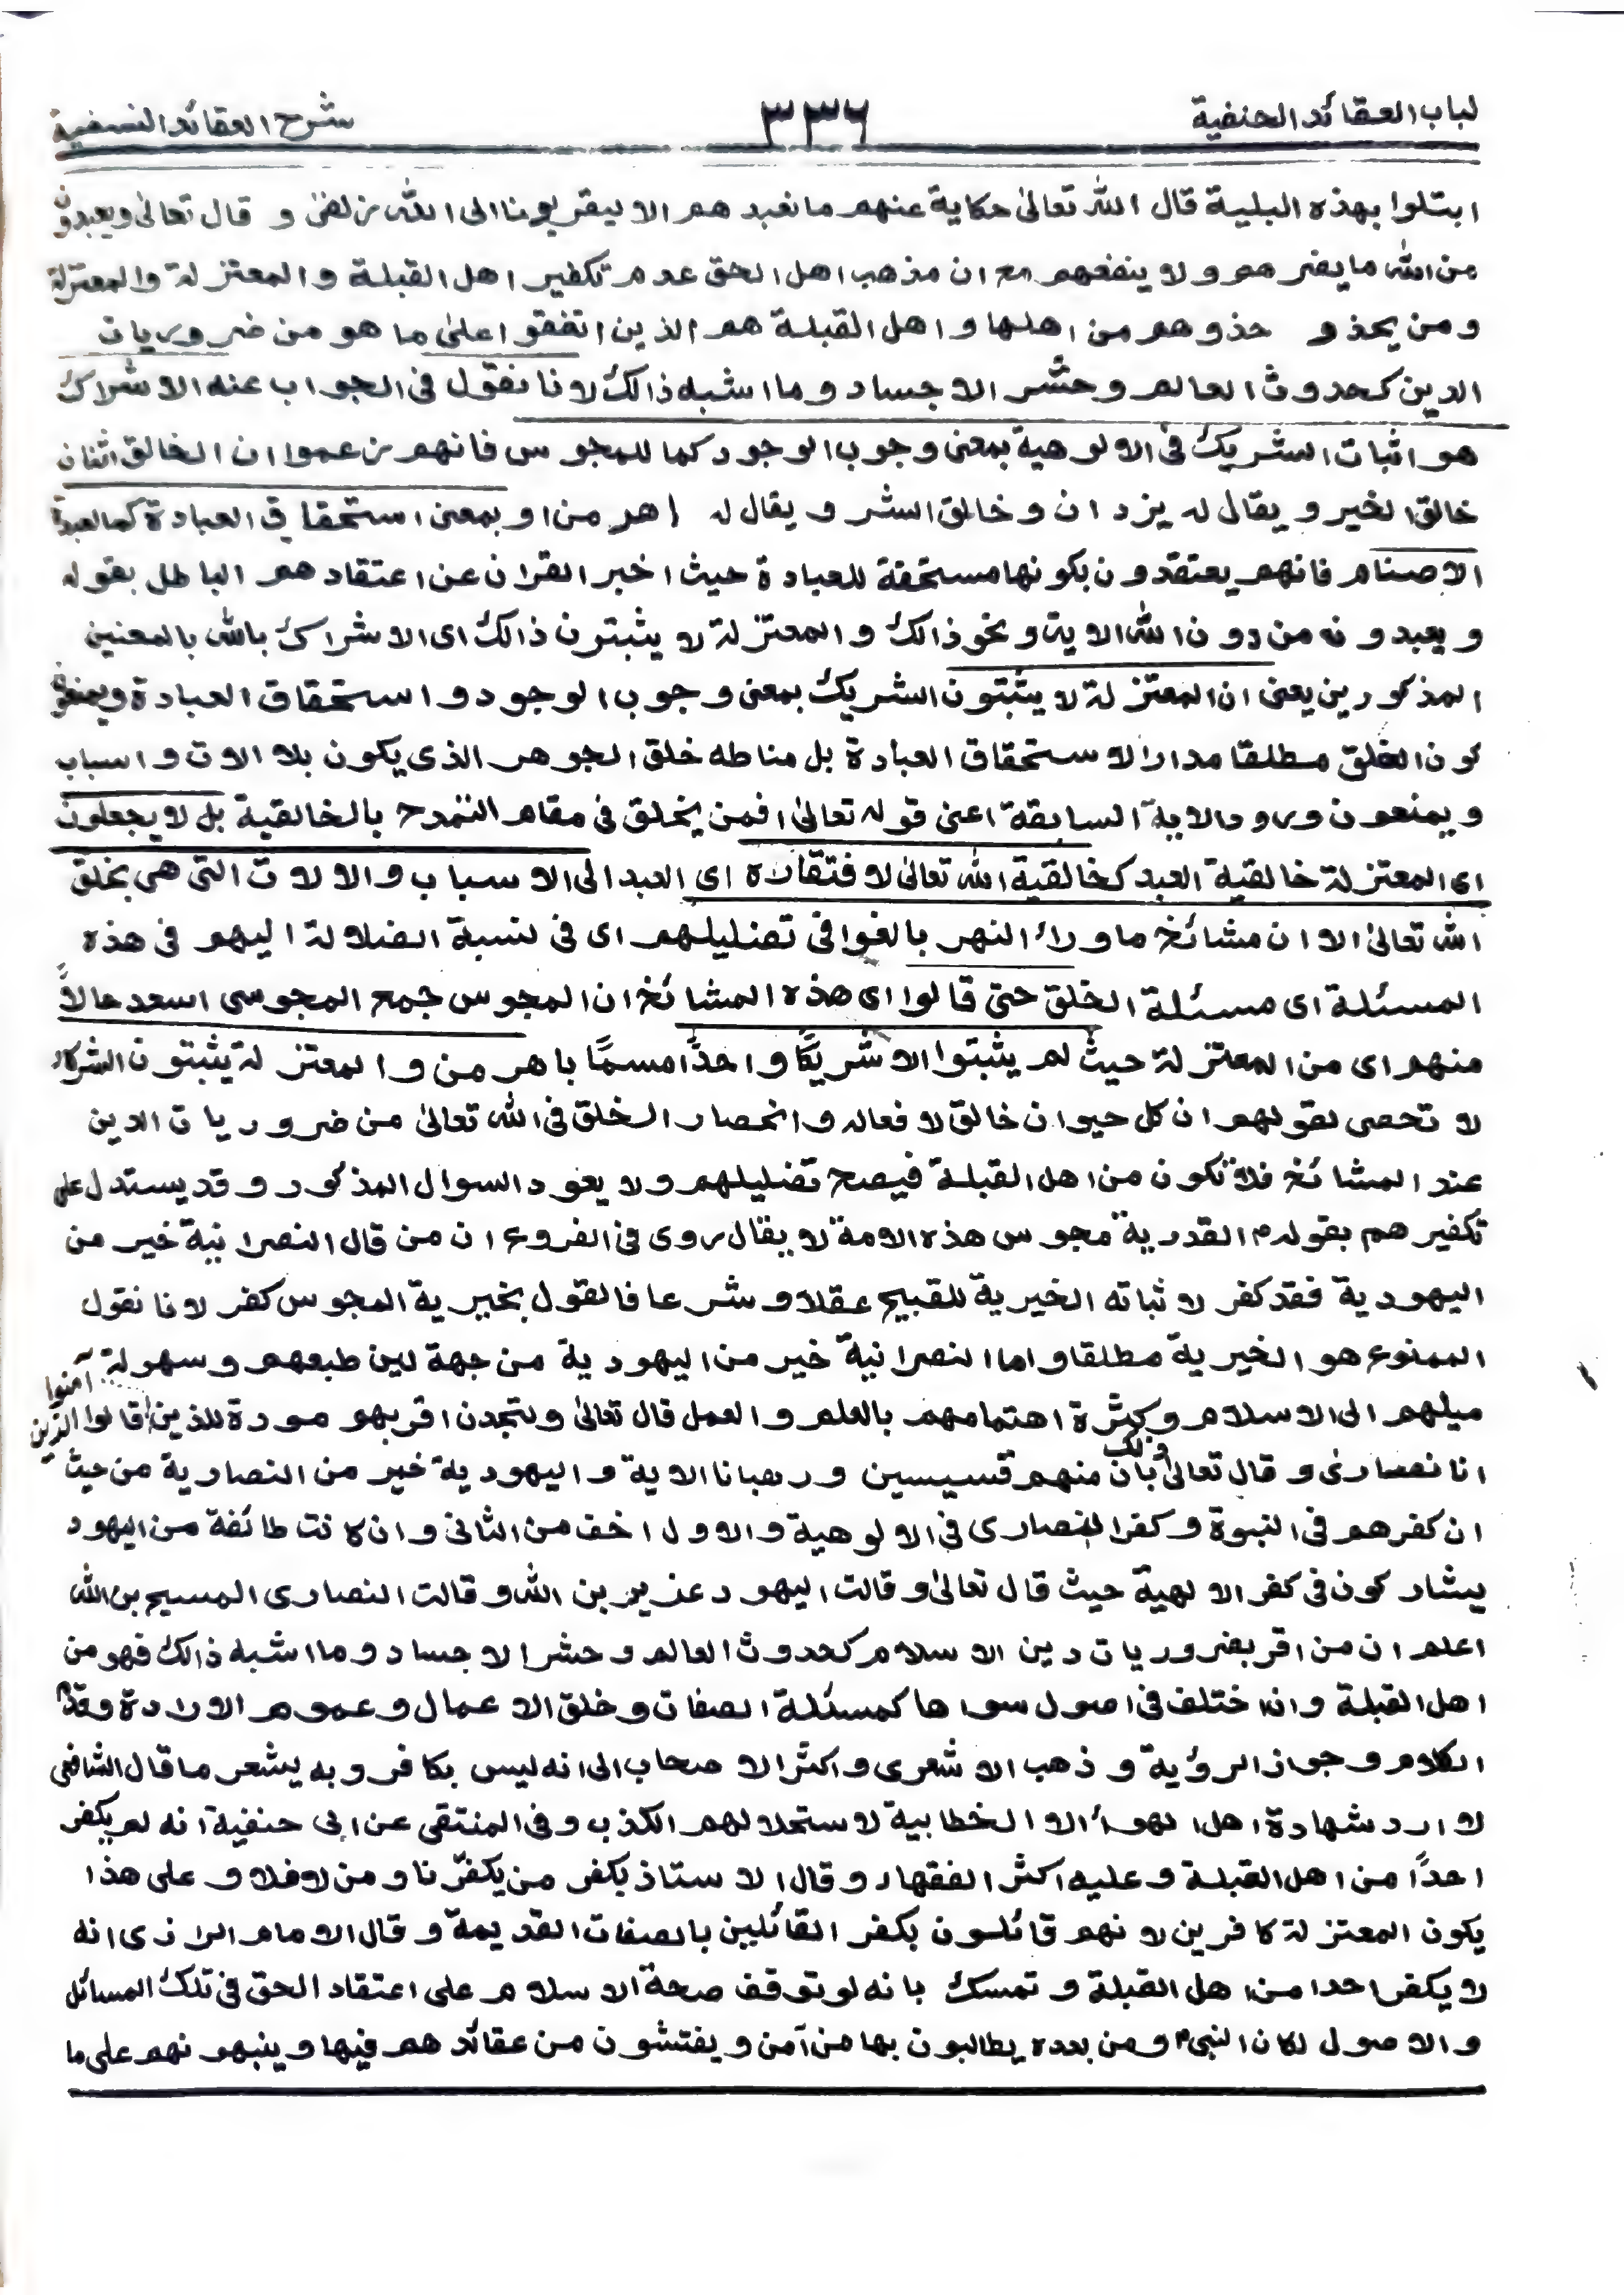 لباب العقائد الحنفية ٣٣٦ شرح العقائد النسفية
ابتلوا بهذه البلية قال الله تعالیٰ حكاية عنهم ما نعبد هم الا ليقربونا الى الله زلفىٰ و قال تعالیٰ ويعبدون
من الله ما يضر هم و لا ينفعهم مع ان مذهب اهل الحق عدم تكفير اهل القبلة و المعتزلة والمعتزلة
و من يحذو حذوهم من اهلها و اهل القبلة هم الذين اتفقوا علیٰ ما هو من ضروريات
الدين كحدوث العالم و حشر الاجساد و ما اشبه ذالك لانا نقول فى الجواب عنه الاشراك
هو اثبات الشريك فى الالوهية بمعنى وجوب الوجود كما للمجوس فانهم زعموا ان الخالق اثنان
خالق الخير و يقال له يزدان و خالق الشر و يقال له اهرمن او بمعنى استحقاق العبادة كما لعبدة
الاصنام فانهم يعتقدون بكونها مستحقة للعبادة حيث اخبر القران عن اعتقاد هم الباطل بقوله
و يعبدونه من دون الله الاية و نحو ذالك و المعتزلة لا يثبتون ذالك اى الاشراك بالله بالمعنين
المذكورين يعنى ان المعتزلة لا يثبتون الشريك بمعنى وجوب الوجود و استحقاق العبادة ويمنعون
كون الخلق مطلقا مدارا لاستحقاق العبادة بل مناطه خلق الجوهر الذى يكون بلا الات و اسباب
و يمنعون ورود الاية السابقة اعنى قوله تعالیٰ افمن يخلق فى مقام التمدح بالخالقية بل لا يجعلون
اى المعتزلة خالقية العبد كخالقية الله تعالیٰ لافتقاره اى العبد الى الاسباب و الالات التى هى بخلق
الله تعالیٰ الا ان مشائخ ماوراء النهر بالغوا فى تضليلهم اى فى نسبة الضلالة اليهم فى هذه
المسئلة اى مسئلة الخلق حتى قالوا اى هذه المشائخ ان المجوس جمع المجوسى اسعد حالاً
منهم اى من المعتزلة حيث لم يثبتوا الا شريكًا واحدًا مسمًا باهرمن و المعتزلة يثبتون الشركاء
لا تحصى لقولهم ان كل حيوان خالق لافعاله و انحصار الخلق فى الله تعالیٰ من ضروريات الدين
عند المشائخ فلا تكون من اهل القبلة فيصح تضليلهم و لا يعود السوال المذكور و قد يستدل على
تكفير هم بقوله م القدرية مجوس هذه الامة لا يقال روى فى الفروع ان من قال النصرانية خير من
اليهودية فقد كفر لاثباته الخيرية للقبيح عقلا و شرعا فالقول بخيرية المجوس كفر لانا نقول
الممنوع هو الخيرية مطلقا و اما النصرانية خير من اليهودية من جهة لين طبعهم و سهولة
ميلهم الى الاسلام و كثرة اهتمامهم بالعلم و العمل قال تعالیٰ و لتجدن اقربهم مودة للذين آمنوا الذين قالوا
انا نصارىٰ و قال تعالیٰ ذلك بأن منهم قسيسين و رهبانا الاية و اليهودية خير من النصارية من حيث
ان كفرهم فى النبوة و كفر النصارى فى الالوهية و الاول اخف من الثانى و ان كانت طائفة من اليهود
يشاركون فى كفر الالهية حيث قال تعالیٰ و قالت اليهود عزير بن الله و قالت النصارى المسيح بن الله
اعلم ان من اقر بضروريات دين الاسلام كحدوث العالم و حشر الاجساد و ما اشبه ذالك فهو من
اهل القبلة و ان اختلف فى اصول سواها كمسئلة الصفات و خلق الاعمال و عموم الارادة و قدم
الكلام و جواز الرؤية و ذهب الاشعرى و اكثر الاصحاب الى انه ليس بكافر و به يشعر ما قال الشافعى
لا ارد شهادة اهل الهواء الا الخطابية لاستحلالهم الكذب و فى المنتقى عن ابى حنفية انه لم يكفر
احدًا من اهل القبلة و عليه اكثر الفقهاء و قال الاستاذ يكفر من يكفرنا و من لا فلا و على هذا
يكون المعتزلة كافرين لانهم قائلون بكفر القائلين بالصفات القديمة و قال الامام الرازى انه
لا يكفر احدا من اهل القبلة و تمسك بانه لو توقف صحة الاسلام على اعتقاد الحق فى تلك المسائل
و الاصول لكان النبى م و من بعده يطالبون بها من آمن و يفتشون من عقائد هم فيها و ينبهونهم على ما